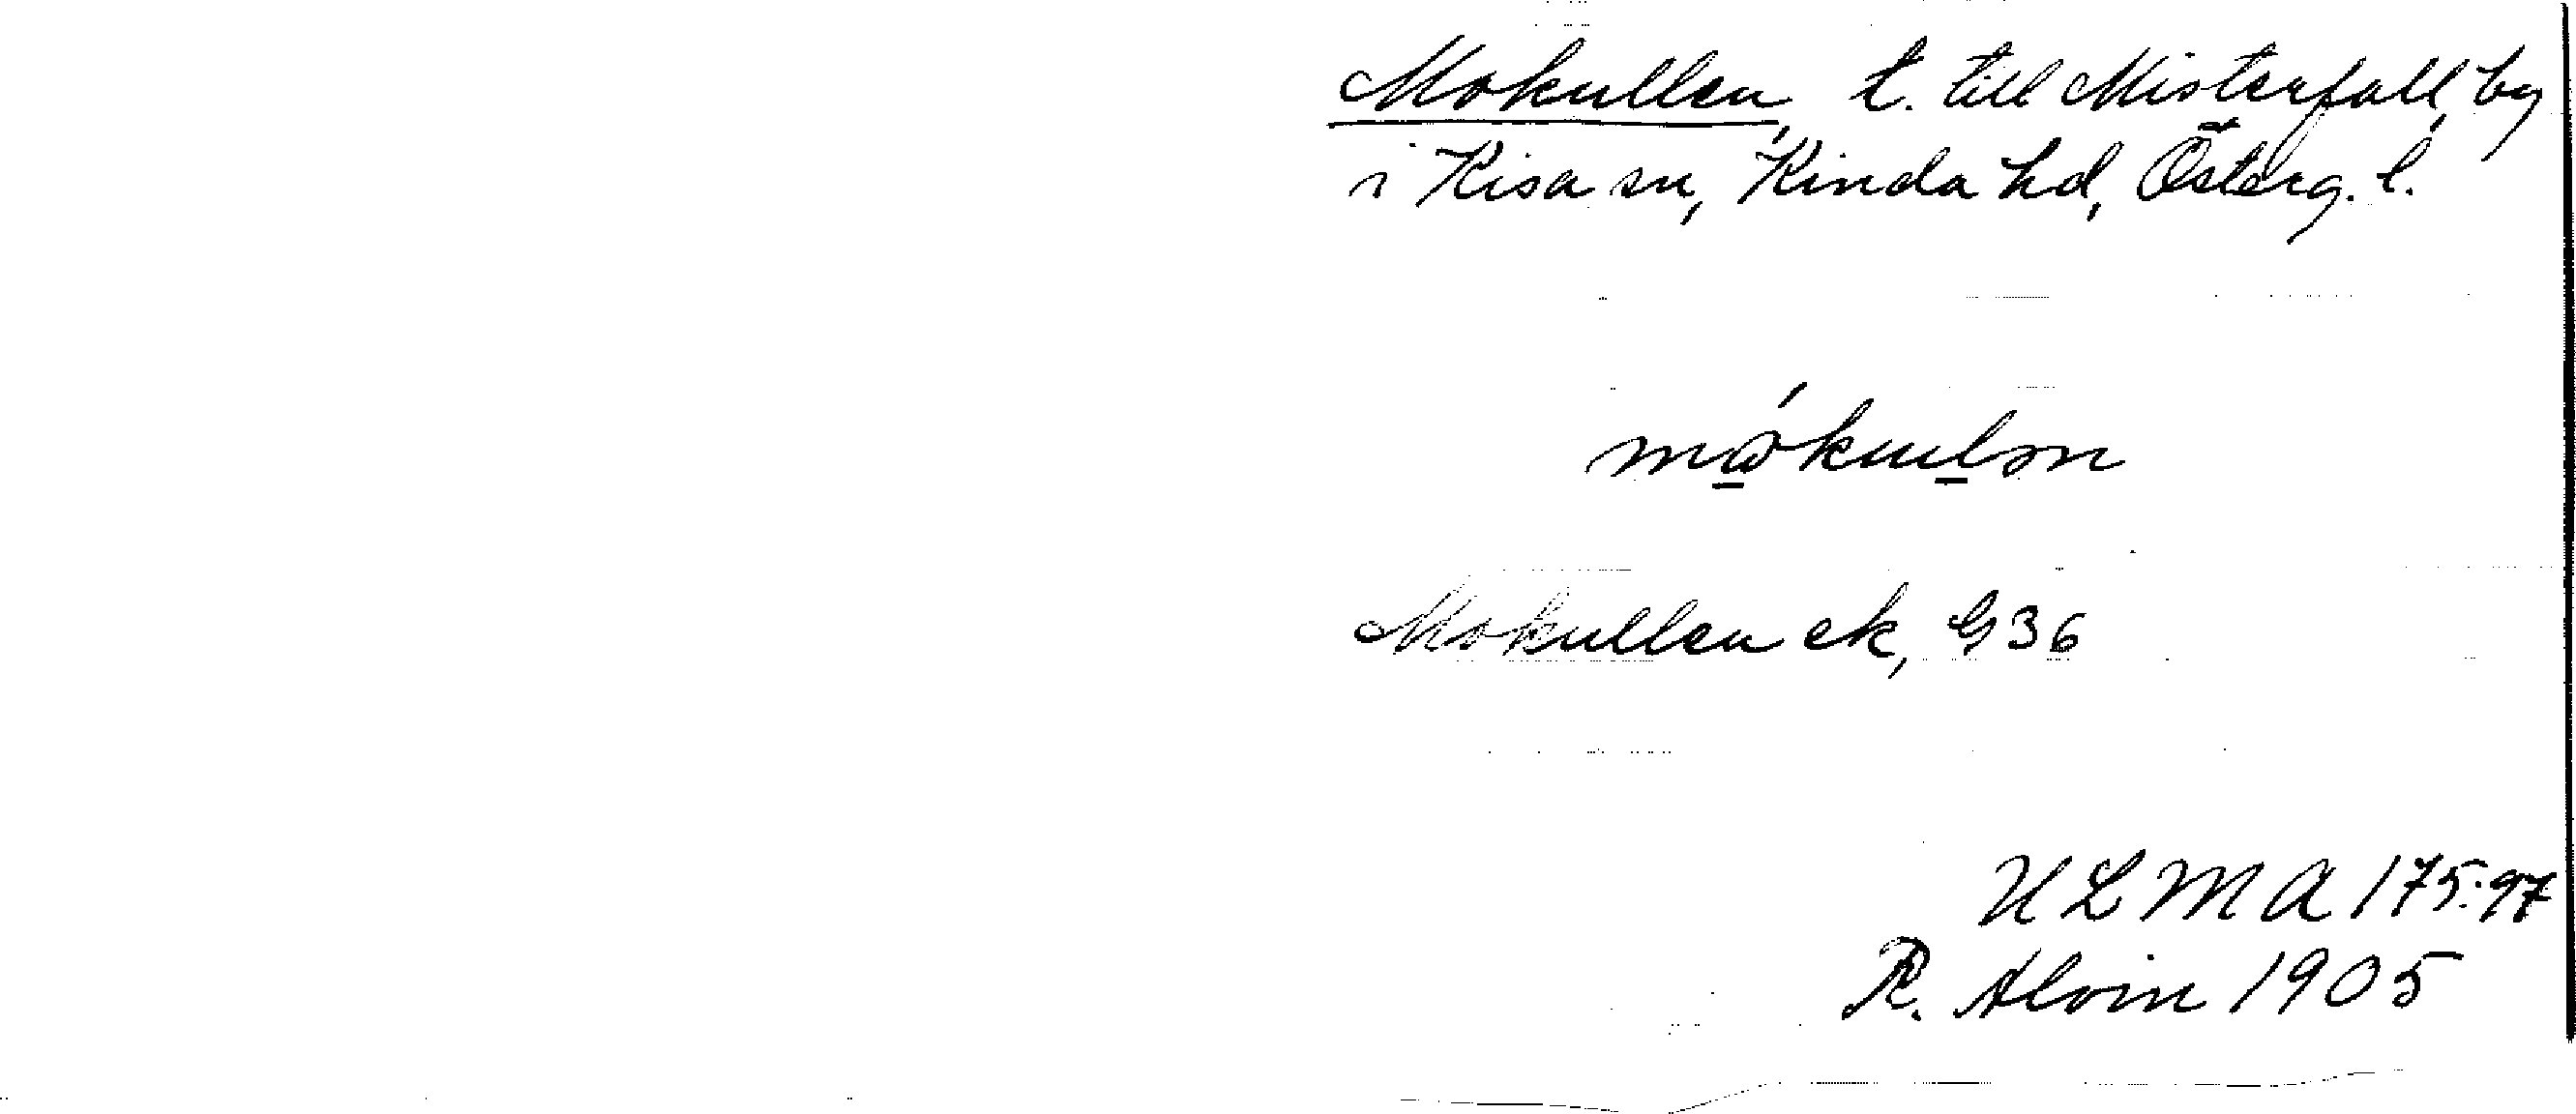 Mokullen, t. till Misterfall, by
i Kisa sn, Kinda hd, Österg. l.
mώ̲kul̲ən
Mokullen ek, G 36
ULMA 175:97
R. Alvin 1905